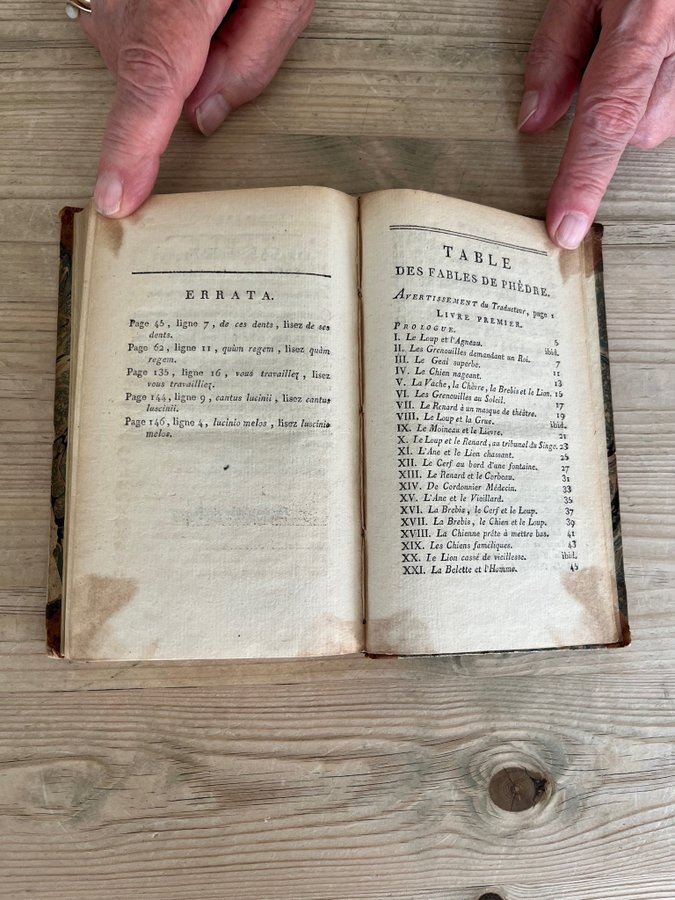 ERRATA.
Page 45, ligne 7, de ces dents, lisez de ses
dents.
Page 62, ligne 11, quùm regem, lisez quàm
regem.
Page 135, ligne 16, vous travaillez, lisez
vous travailliez.
Page 144, ligne 9, cantus lucinii, lisez cantus
luscinii.
Page 146, ligne 4, lucinio melos, lisez luscinio
melos.
TABLE
DES FABLES DE PHÈDRE.
AVERTISSEMENT du Traducteur, page 1
LIVRE PREMIER.
PROLOGUE. 5
I. Le Loup et l'Agneau. ibid.
II. Les Grenouilles demandant un Roi. 7
III. Le Geai superbe. 11
IV. Le Chien nageant. 13
V. La Vache, la Chèvre, la Brebis et le Lion. 15
VI. Les Grenouilles au Soleil. 17
VII. Le Renard à un masque de théâtre. 19
VIII. Le Loup et la Grue. ibid.
IX. Le Moineau et le Lièvre. 21
X. Le Loup et le Renard, au tribunal du Singe. 23
XI. L'Ane et le Lion chassant. 25
XII. Le Cerf au bord d'une fontaine. 27
XIII. Le Renard et le Corbeau. 31
XIV. De Cordonnier Médecin. 33
XV. L'Ane et le Vieillard. 35
XVI. La Brebis, le Cerf et le Loup. 37
XVII. La Brebis, le Chien et le Loup. 39
XVIII. La Chienne prête à mettre bas. 41
XIX. Les Chiens faméliques. 43
XX. Le Lion cassé de vieillesse. ibid.
XXI. La Belette et l'Homme. 45